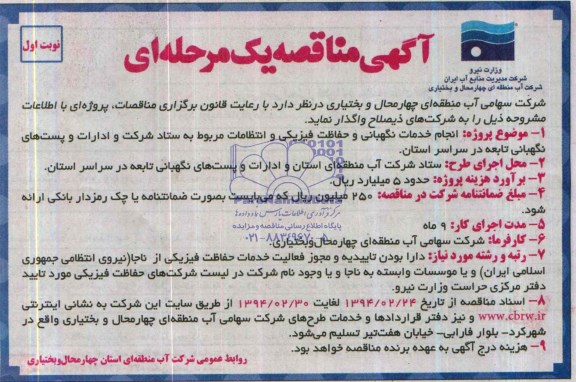 نوبت اول
آگهی مناقصه یک مرحله‌ای
وزارت نیرو
شرکت مدیریت منابع آب ایران
شرکت آب منطقه ای چهارمحال و بختیاری
شرکت سهامی آب منطقه‌ای چهارمحال و بختیاری درنظر دارد با رعایت قانون برگزاری مناقصات، پروژه‌ای با اطلاعات
مشروحه ذیل را به شرکت‌های ذیصلاح واگذار نماید.
۱- موضوع پروژه: انجام خدمات نگهبانی و حفاظت فیزیکی و انتظامات مربوط به ستاد شرکت و ادارات و پست‌های
نگهبانی تابعه در سراسر استان.
۲- محل اجرای طرح: ستاد شرکت آب منطقه‌ای استان و ادارات و پست‌های نگهبانی تابعه در سراسر استان.
۳- برآورد هزینه پروژه: حدود ۵ میلیارد ریال.
۴- مبلغ ضمانتنامه شرکت در مناقصه: ۲۵۰ میلیون ریال که می‌بایست بصورت ضمانتنامه یا چک رمزدار بانکی ارائه
شود.
پایگاه اطلاع رسانی مناقصه و مزایده
۵- مدت اجرای کار: ۹ ماه
۰۲۱-۸۸۳۴۹۶۷۰-۵
۶- کارفرما: شرکت سهامی آب منطقه‌ای چهارمحال‌وبختیاری.
۷- رتبه و رشته مورد نیاز: دارا بودن تاییدیه و مجوز فعالیت خدمات حفاظت فیزیکی از ناجا(نیروی انتظامی جمهوری
اسلامی ایران) و یا موسسات وابسته به ناجا و یا وجود نام شرکت در لیست شرکت‌های حفاظت فیزیکی مورد تایید
دفتر مرکزی حراست وزارت نیرو.
۸- اسناد مناقصه از تاریخ ۱۳۹۴/۰۲/۲۴ لغایت ۱۳۹۴/۰۲/۳۰ از طریق سایت این شرکت به نشانی اینترنتی
www.cbrw.ir و نیز دفتر قراردادها و خدمات طرح‌های شرکت سهامی آب منطقه‌ای چهارمحال و بختیاری واقع در
شهرکرد- بلوار فارابی- خیابان هفت‌تیر تسلیم می‌شود.
۹- هزینه درج آگهی به عهده برنده مناقصه خواهد بود.
روابط عمومی شرکت آب منطقه‌ای استان چهارمحال‌وبختیاری